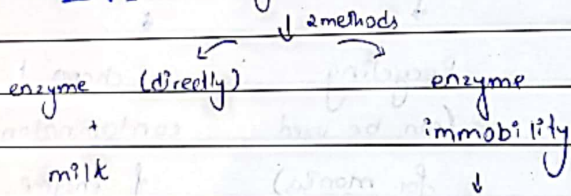 2 methods
enzyme (directly) enzyme
+ immobility
milk